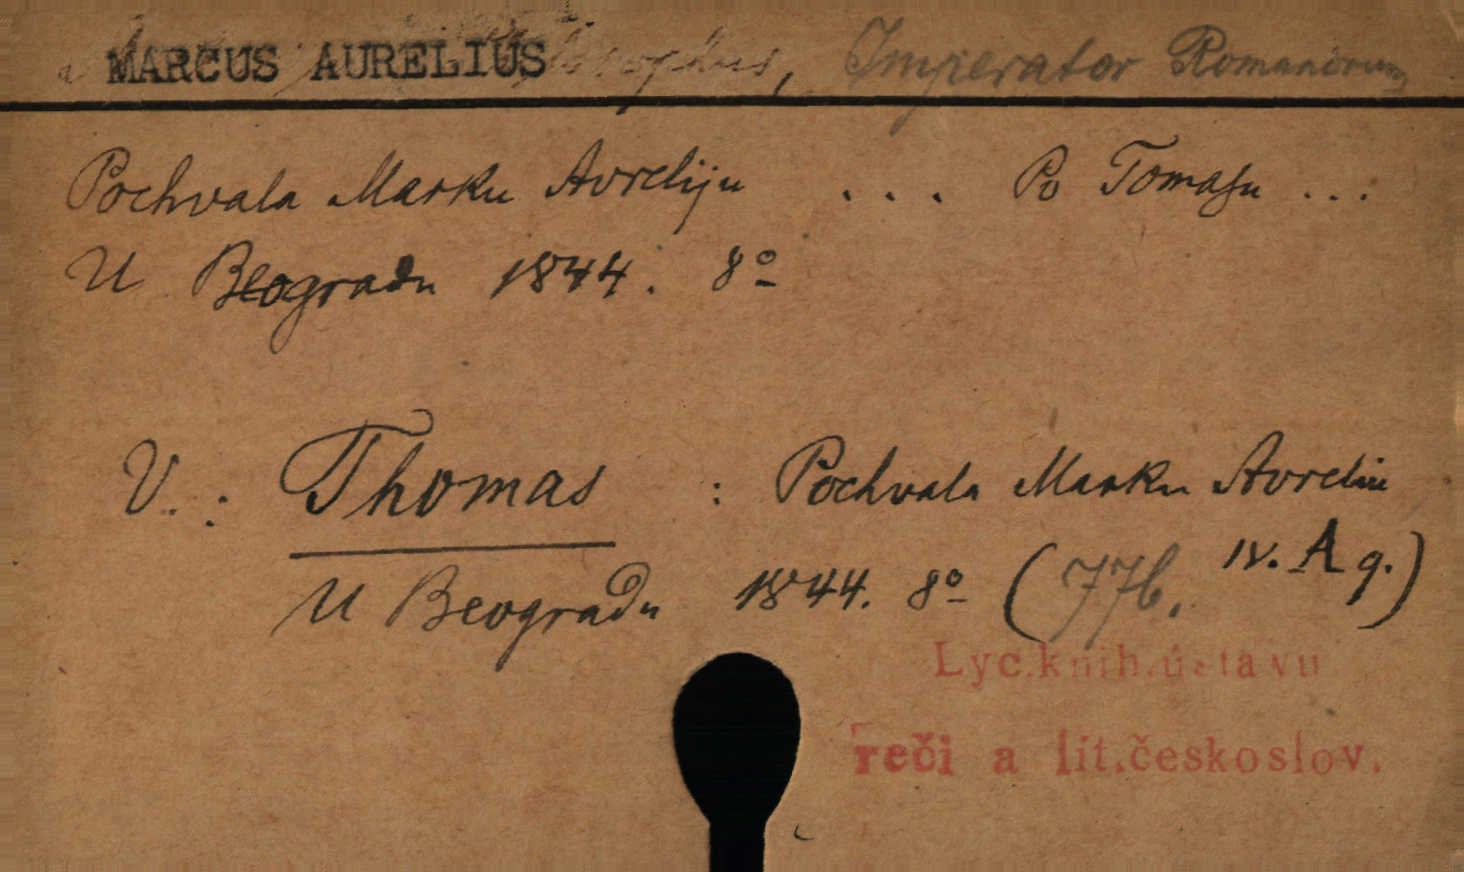 MARCUS AURELIUS, Imperator Romanorum
Pochvala Marku Avreliju . . . Po Tomasu . . .
U Beogradu 1844. 8º
V. : Thomas : Pochvala Marku Avreliu
U Beogradu 1844. 8º (776. IV. A g.)
Lyc.knih.ústavu
reči a lit.českoslov.